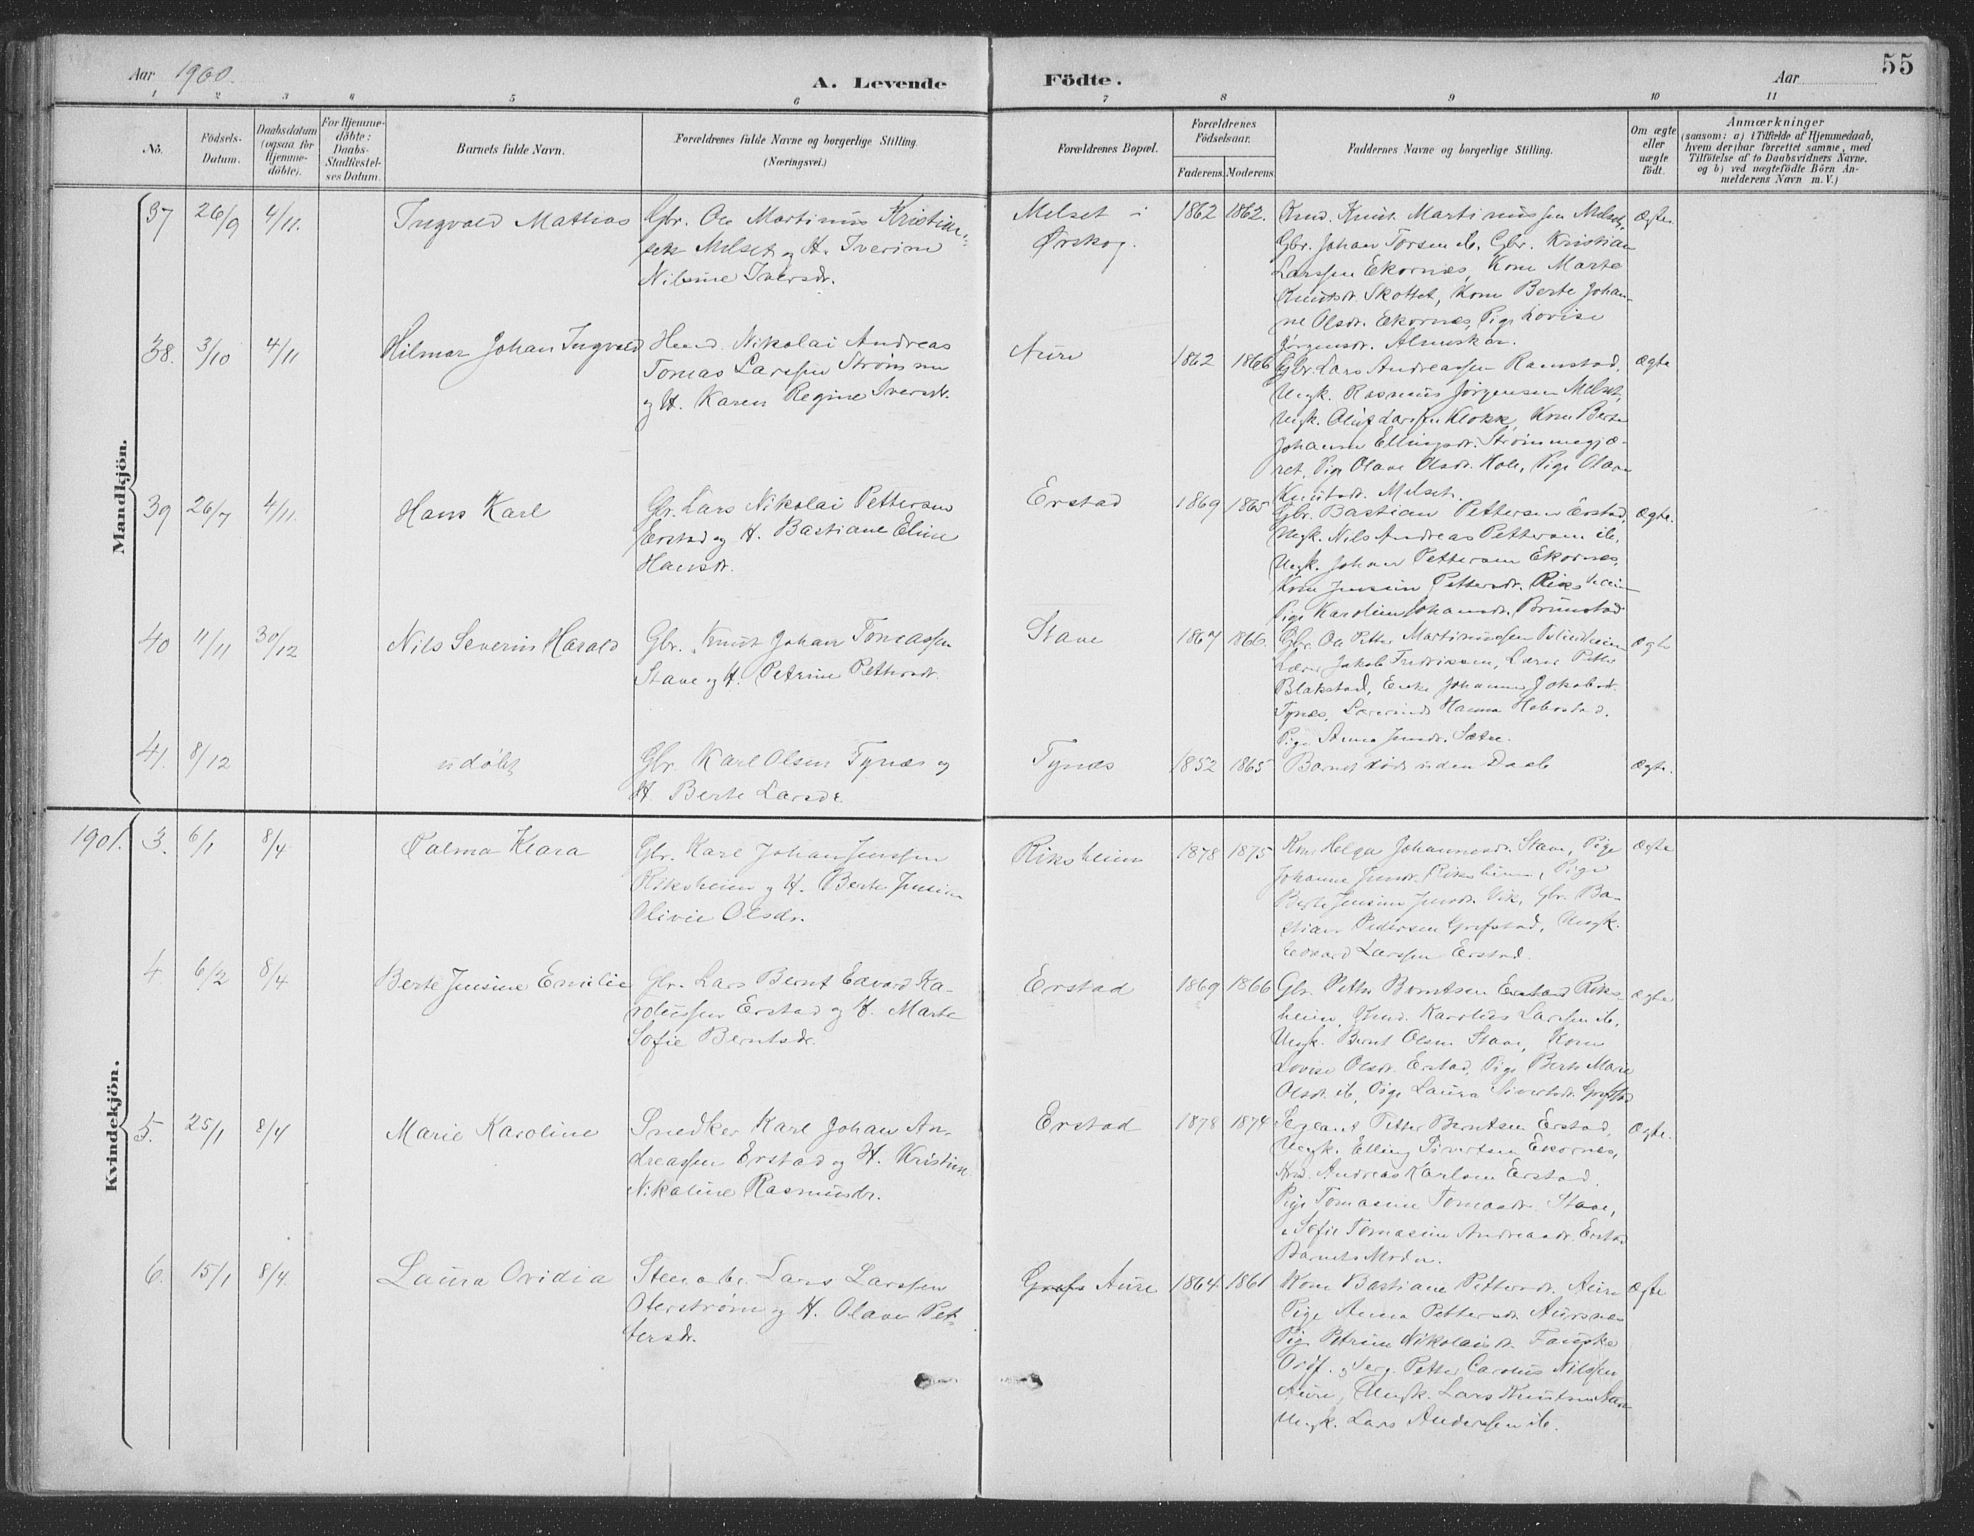 Aar 1900.
A. Levende
Födte.
Aar
55
1 2 3 4 5 6 7 8 9 10 11
No.
Födsels-
Datum.
Daabsdatum
(ogsaa for
Hjemme-
döbte).
For Hjemme-
döbte:
Daabs-
Stadfæstel-
ses Datum.
Barnets fulde Navn.
Forældrenes fulde Navne og borgerlige Stilling.
(Næringsvei.)
Forældrenes Bopæl.
Forældrenes
Födselsaar.
Faderens. Moderens.
Faddernes Navne og borgerlige Stilling.
Om ægte
eller
uægte
födt.
Anmærkninger
(saasom: a) i Tilfælde af Hjemmedaab,
hvem der har forrettet samme, med
Tilföielse af to Daabsvidners Navne,
og b) ved uægtefödte Börn An-
melderens Navn m. V.)
Mandkjön.
37 26/9 4/11. Ingvald Mathias
Gbr. Ole Martinus Kristian-
sen Melset og H. Iverine
Nilsine Iversdr.
Melset i
Ørskog.
1862 1862.
Knut Martinussen Melset,
Gbr. Johan Torsen ib, Gbr. Kristian
Larssen Ekornæs, Kone Marte
Knutsdr Skottet, Kone Berte Johan-
ne Olsdr. Ekornæs, Pige Lovise
Jörgensdr.
Ægte
38. 3/10 4/11 Hilmar Johan Ingvald
Nikolai Andreas
Tomas Larssen Strömme
og H. Karen Regine Iversdr.
Aure
1862 1866
Gbr. Lars Andreassen Ramstad,
Ungk. Rasmus Jörgensen Melset,
Ungk. Oluf Larssen Klokk, Kone Berte
Johanne Ellingsdr. Strömmegjæ-
ret, Pige Olave Olsdr. Hole, Pige Olave
Knutsdr. Melset.
Ægte
39 26/7 4/11. Hans Karl
Gbr. Lars Nikolai Pettersen
Erstad og H. Bastiane Eline
Hansdr.
Erstad
1869 1865
Gbr. Bastian Pettersen Erstad,
Ungk. Nils Andreas Pettersen ib,
Ungk. Johan Pettersen Ekornæs,
Kone Jensine Pettersdr. Riksheim
Pige Karoline Johansdr. Brunstad
Ægte.
40 11/11 30/12 Nils Severin Harald
Gbr. Knut Johan Tomassen
Stave og H. Petrine Pettersdr.
Stave
1867 1866.
Gbr. Ole Petter Martinussen
Lærer Jakob Fredrikssen, Lærer Petter
Blakstad, Enke Johanne Jakobsdr.
Tynes, Lærerinde Hanna
Pige Anna Jensdr. Sætre.
Ægte
41. 8/12 udøbt
Gbr. Karl Olsen Tynæs og
H. Berte Larsdr.
Tynæs
1852 1865
Barnet død uden Daab
Ægte.
Kvindekjön.
1901. 3. 6/1 8/4 Palma Klara
Gbr. Karl Johan Jenssen
Riksheim og H. Berte Jensine
Olivie Olsdr.
Riksheim
1878 1875
Kone Helga Johannesdr. Stave, Pige
Johanne Jensdr. Riksheim, Pige
Berte Jensine Jensdr. Vik, Gbr. Ba-
stian Pedersen Grefstad, Ungk.
Edvard Larssen Erstad.
Ægte
4 6/2 8/4 Berte Jensine Emilie
Gbr. Lars Bernt Edvard Ka-
rolussen Erstad og H. Marte
Sofie Berntsdr.
Erstad
1869 1866
Gbr. Petter Berntsen Erstad Riks-
heim, Karolus Larssen ib,
Ungk. Bernt Olsen Stave, Kone
Lovise Olsdr. Erstad, Pige Berte Marie
Olsdr. ib, Pige Laura Sivertsdr. Grefstad
Ægte
5. 25/1 8/4 Marie Karoline
Snedker Karl Johan An-
dreassen Erstad og H. Kristine
Nikoline Rasmusdr.
Erstad
1878 1874
Sergeant Petter Berntsen Erstad,
Ungk. Elling Sivertsen Ekornæs,
Andreas Karlsen Erstad.
Pige Tomasine Tomasdr. Stave,
Sofie Tomasine Andreasdr. Erstad
Barnets Moder.
Ægte.
6. 15/1 8/4. Laura Ovidia
Lars Larssen
Oterström og H. Olave Pet-
tersdr.
Grefs Aure
1864 1861
Kone Bastiane Pettersdr. Aure
Pige Anna Pettersdr Aursnes
Pige Petrine Nikolaisdr. Fauske
Petter Carolus Nilssen
Aure, Ungk. Lars Knutsen Stave
Ungk. Lars Anderssen ib.
Ægte